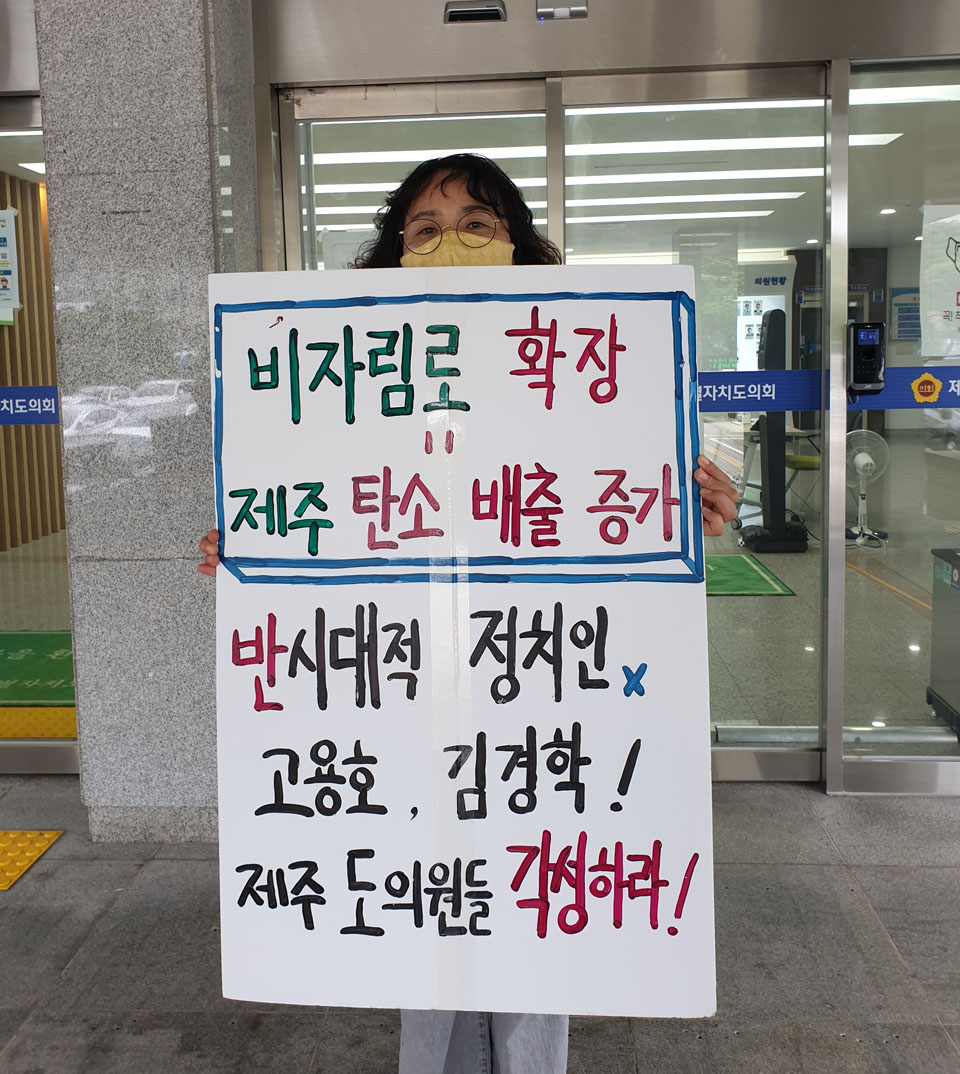 비자림로 확장
=
제주 탄소 배출 증가
반시대적 정치인 x
고용호, 김경학!
제주 도의원들 각성하라!
의원현황
치도의회
별자치도의회
의회
제